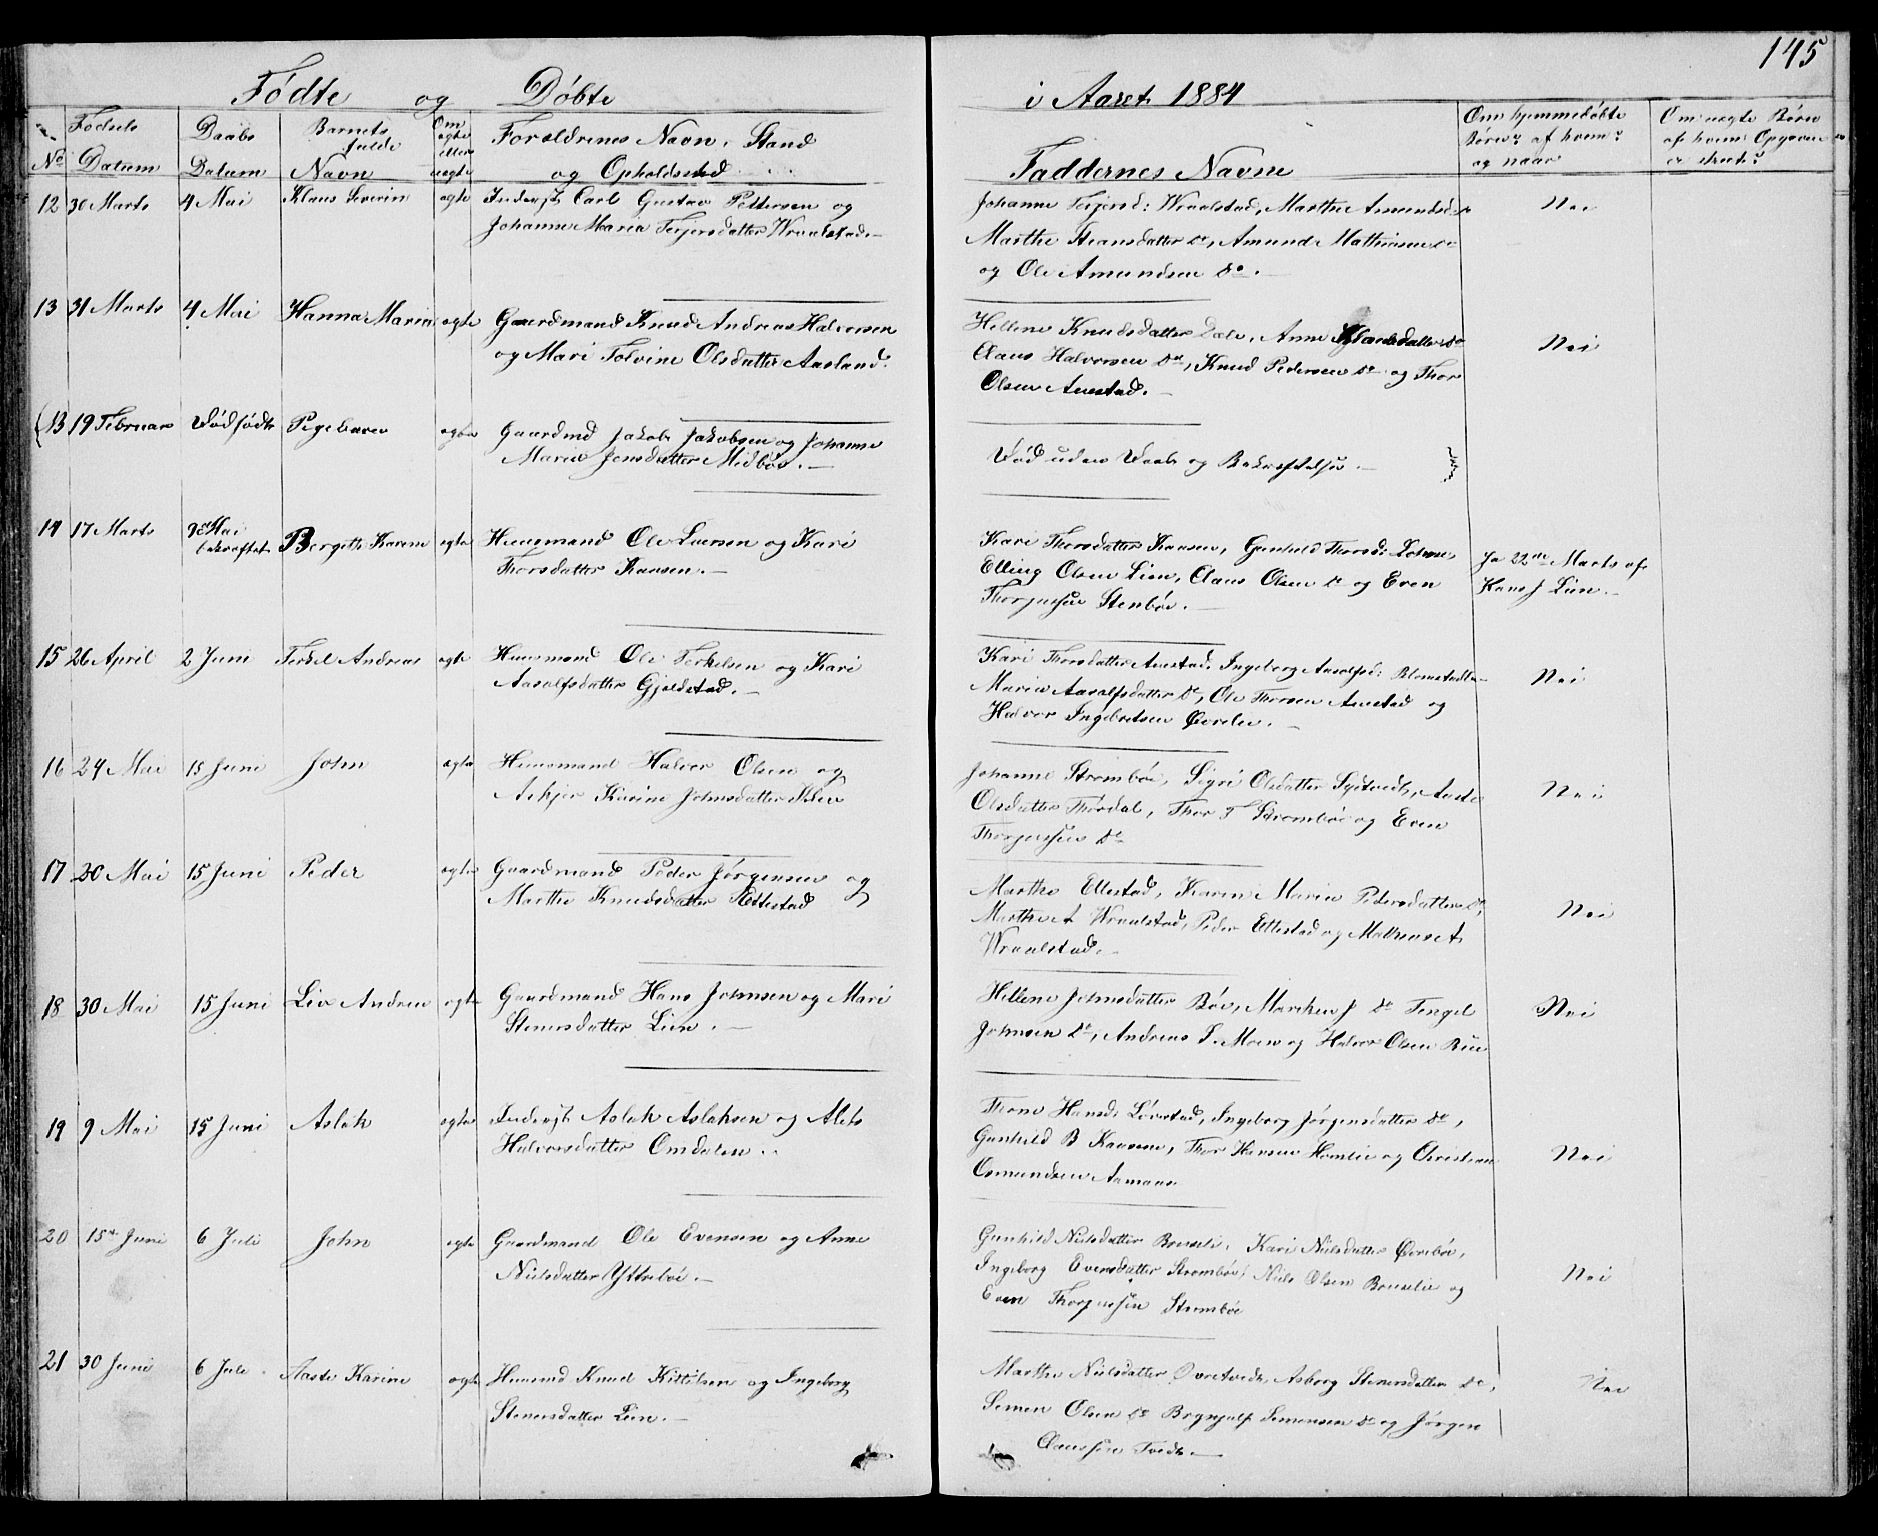 145
Födte og Döbte i Aaret 1884
No
Födsels Datum
Daabs Datum
Barnets fulde Navn
Om ægte eller uægte
Forældrenes Navn, Stand og Opholdssted
Faddernes Navne
Om hjemmedöbte Börn? af hvem? og naar
Om uægte Börn af hvem Opgaven er sked?
12 30 Marts 4 Mai Klaus Severin ægte Inderst Carl Gustav Pettersen og
Johanne Maria Terjersdatter Wraalstad.
Johanne Terjersd: Wraalstad, Marthe Amundsd
Marthe datter do, Amund Mathisen do
og Ole Amundsen do.
Nei
13 31 Marts 4 Mai Hanna Maria ægte Gaardmand Knud Andreas Halvorsen
og Mari Tolvine Olsdatter Aasland.
Hellene Knudsdatter Dale, Anne datter do
Claus Halvorsen do, Knud Pedersen do og Thor
Olsen Austad.
Nei
(13 19 Februar Dödfödt Pigebarn ægte Gaardmd Jakob Jakobsen og Johanne
Maria Jensdatter Midböe.
Död uden Daab og Bekræftelse.
14 17 Marts Mai bekræftet Bergith Karine ægte Huusmand Ole Larsen og Kari
Thorsdatter Kaasen.
Kari Thorsdatter Kaasen, Gunhild Thorsd:
Elling Olsen Lien, Claus Olsen do og Even
Thorjussen Stenböe.
Ja 22de Marts af
Hans J Lien.
15 26 April 2 Juni Terkel Andreas ægte Huusmand Ole Terkelsen og Kari
Aasolfsdatter Gjeldstad.
Kari Thorsdatter Austad, Ingeborg Aasolfsd:
Maria Aasolfsdatter do, Ole Thorsen Austad og
Halvor Ingebretsen Överlie.
Nei
16 24 Mai 15 Juni John ægte Huusmand Halvor Olsen og
Askjer Karine Johnsdatter
Johanne Stromböe, Sigri Olsdatter Aaste
Olsdatter Thördal, Thor T Stromböe og Even
Thorjussen do
Nei
17 20 Mai 15 Juni Peder ægte Gaardmand Peder Jörgensen og
Marthe Knudsdatter Ettestad
Marthe Ettestad, Karen Marie Pedersdatter do,
Marthe A Wraalstad, Peder Ettestad og Mathias A
Wraalstad.
Nei
18 30 Mai 15 Juni Liv Andrea ægte Gaardmand Hans Johnsen og Mari
Stenersdatter Lien.
Hellene Johnsdatter Böe, Marichen J do Tengel
Johnsen do, Andreas T. Moen og Halvor Olsen Bue
Nei
19 9 Mai 15 Juni Aslak ægte Inderst Aslak Aslaksen og Alet
Halvorsdatter Omdalen.
Thone Hansd: Lövstad, Ingeborg Jörgensdatter do,
Gunhild B Kaasene, Thor Hansen Homlie og Christian
Osmundsen Aamaas
Nei
20 15de Juni 6 Juli John ægte Gaardmand Ole Evensen og Anne
Nielsdatter Ytteböe.
Gunhild Nielsdatter Bruselie, Kari Nielsdatter Överböe,
Ingeborg Evensdatter Stromböe, Niels Olsen Bruselie og
Even Thorjussen Stromböe
Nei
21 30 Juni 6 Juli Aaste Karine ægte Huusmd Knud Kittilsen og Ingeborg
Stenersdatter Lien.
Marthe Nielsdatter Övretvedt, Asborg Stenersdatter do,
Semen Olsen do Brynjulf Semensen do og Jörgen
Claussen Tvedt.
Nei